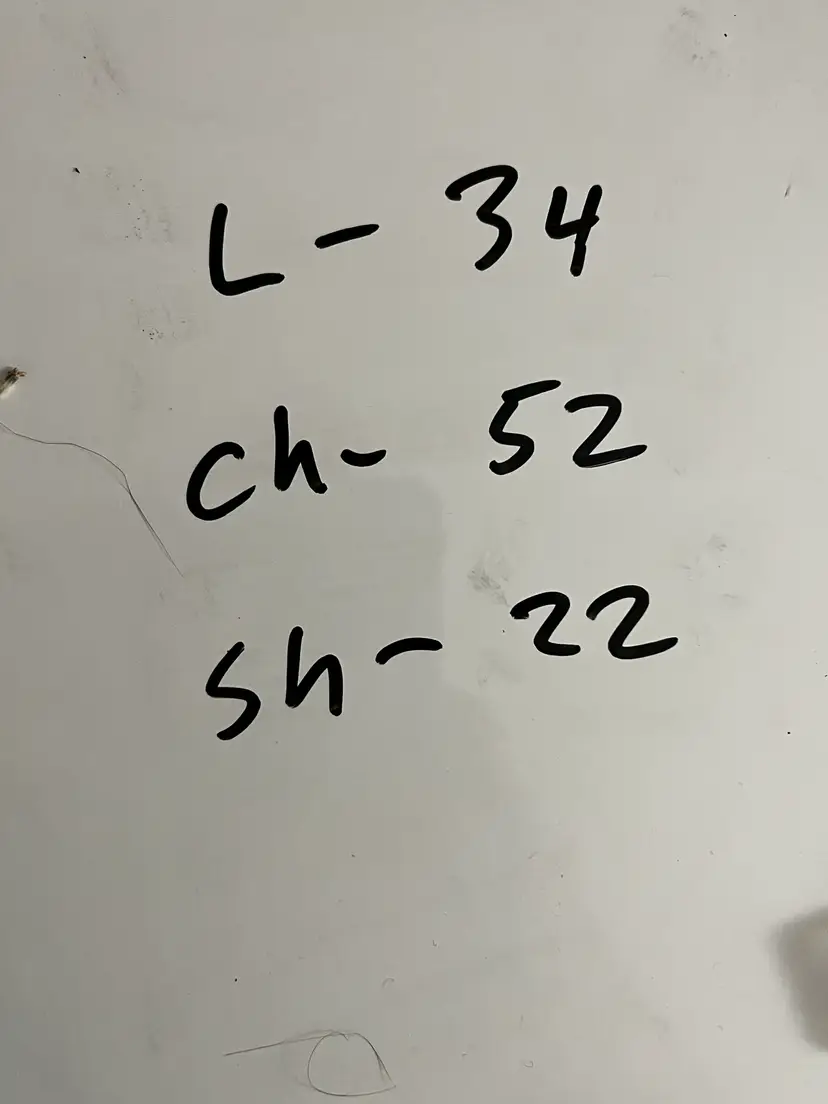 L - 34
Ch - 52
Sh - 22